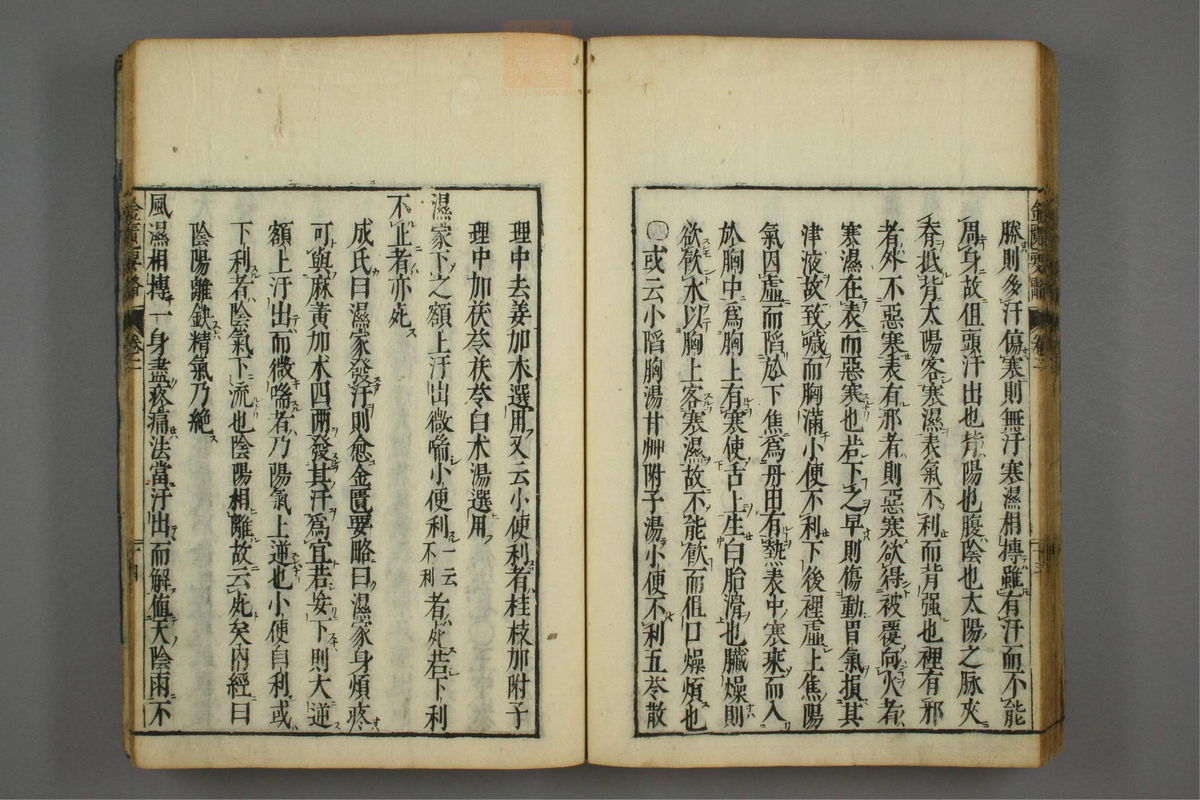 勝則多汗傷寒則無汗寒濕相搏雖有汗而不能
周身故但頭汗出也背陽也腹陰也太陽之脉夾
脊抵背太陽客寒濕表氣不利而背强也裡有邪
者外不惡寒表有邪者則惡寒欲得被覆向火者
寒濕在表而惡寒也若下之早則傷動胃氣損其
津液故致噦而胸滿小便不利下後裡虛上焦陽
氣因虛而陷於下焦爲丹田有熱表中寒乘而入
於胸中爲胸上有寒使舌上生白胎滑也臟燥則
欲飮水以胸上客寒濕故不能飮而但口燥煩也
或云小陷胸湯甘艸附子湯小便不利五苓散
理中去姜加朮選用又云小便利者桂枝加附子
理中加茯苓茯苓白朮湯選用
濕家下之額上汗出微喘小便利一云不利者死若下利
不止者亦死
成氏曰濕家發汗則愈金匱要略曰濕家身煩疼
可與麻黃加朮四兩發其汗爲宜若妄下則大逆
額上汗出而微喘者乃陽氣上逆也小便自利或
下利者陰氣下流也陰陽相離故云死矣內經曰
陰陽離鈌精氣乃絶
風濕相搏一身盡疼痛法當汗出而解值天陰雨不